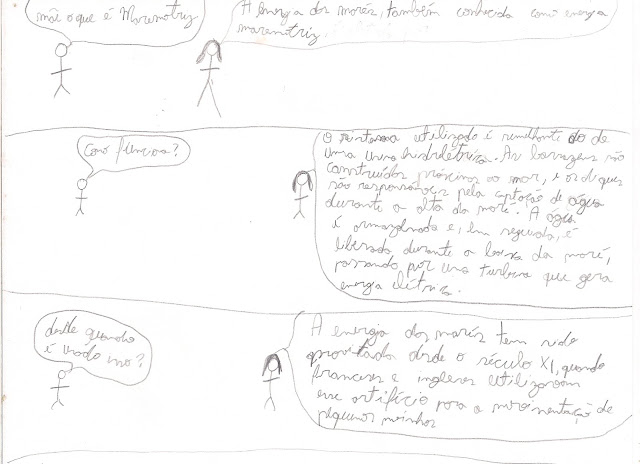 mãe o que é Maremotriz
A energia das marés, também conhecida como energia
maremotriz.
Como funciona?
O sistema utilizado é semelhante do de
uma usina hidreletrica. As barragens são
construídas próximas ao mar, e os diques
são responsáveis pela captação de água
durante a alta da maré. A água
é armazenada e, em seguida, é
liberada durante a baixa da maré,
passando por uma turbina que gera
energia elétrica.
desde quando
é usado isso?
A energia das marés tem sido
aproveitada desde o século XI, quando
franceses e ingleses utilizavam
esse artifício para a movimentação de
pequenos moinhos